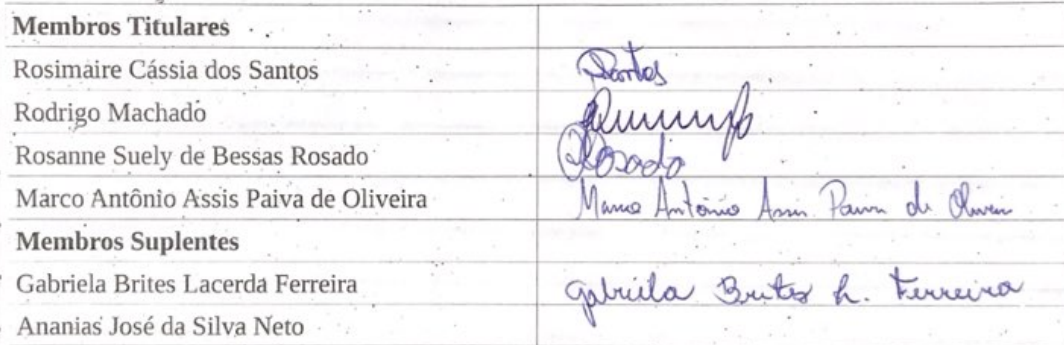 Membros Titulares
Rosimaire Cássia dos Santos Santos
Rodrigo Machado
Rosanne Suely de Bessas Rosado Rosado
Marco Antônio Assis Paiva de Oliveira Marco Antônio Assis Paiva de Oliveira
Membros Suplentes
Gabriela Brites Lacerda Ferreira Gabriela Brites L. Ferreira
Ananias José da Silva Neto